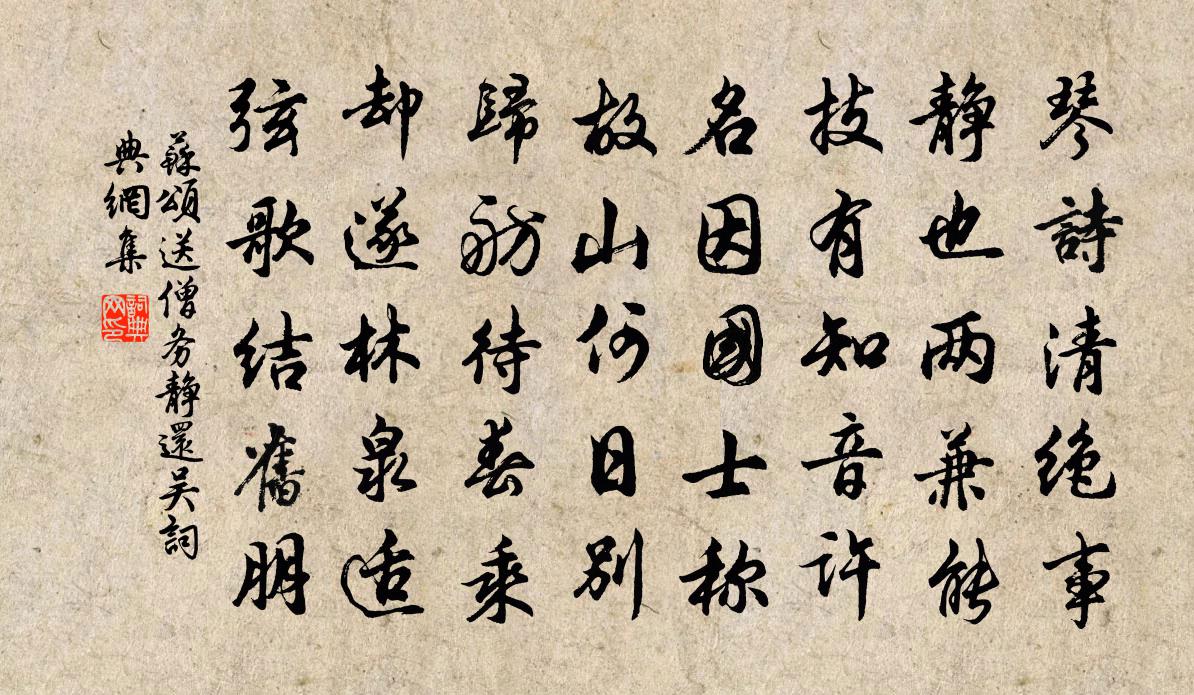 琴詩清绝事
静也两兼能
技有知音许
名因國士称
故山何日别
歸舫待春乘
却遂林泉适
弦歌结舊朋
蘇頌送僧务静還吴詞
典網集
詞典
网印